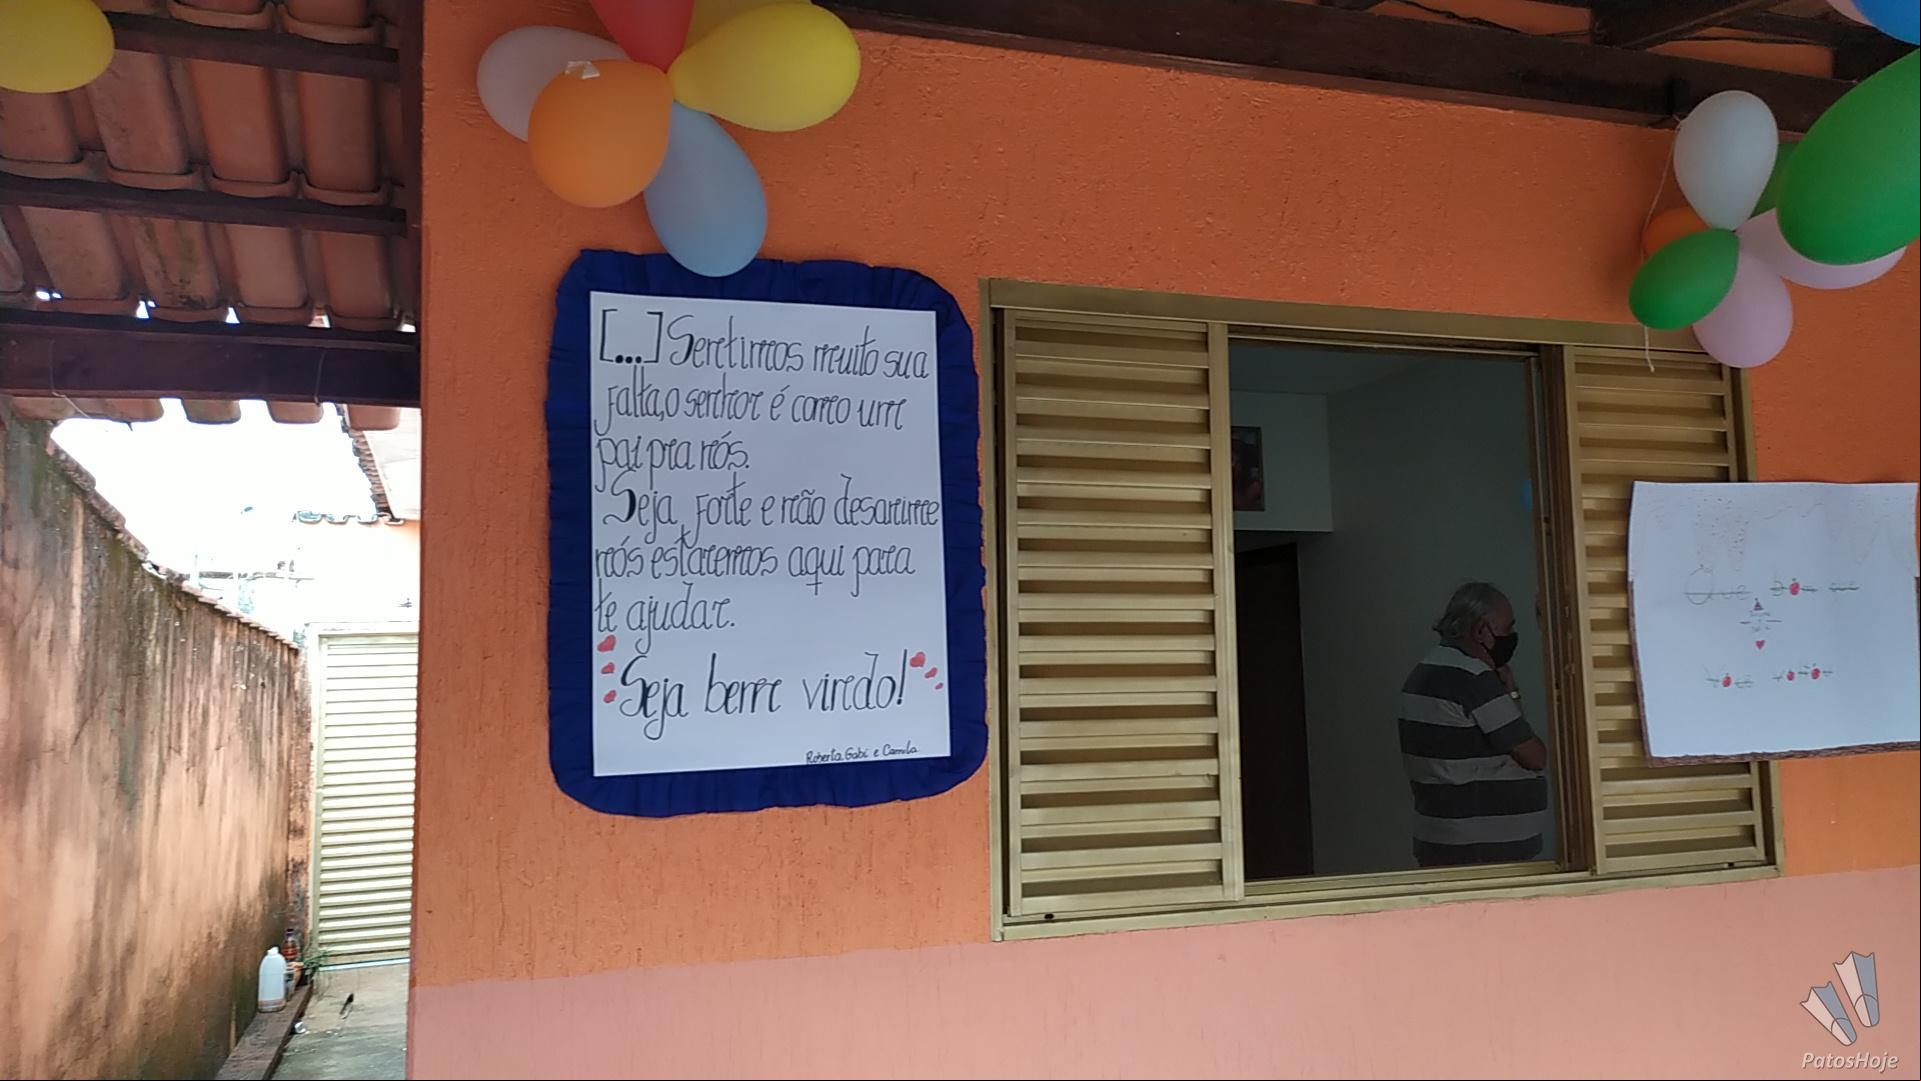 [...] Sentimos muito sua
falta, o senhor é como um
pai pra nós.
Seja forte e não desanime
nós estaremos aqui para
te ajudar.
Seja bem vindo!
Roberta, Gabi e Camila
PatosHoje